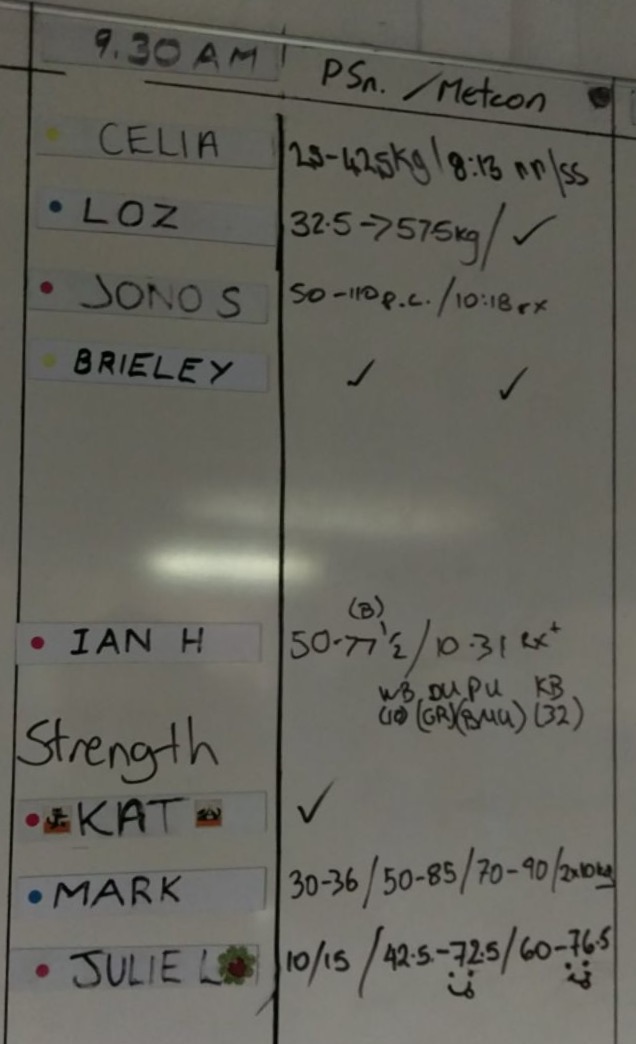 9.30 AM PSn. / Metcon
CELIA 25-42.5kg / 8:13 rr/ss
LOZ 32.5->57.5kg / ✓
JONO S 50-110 p.c. / 10:18 rx
BRIELEY ✓ ✓
(B)
IAN H 50-77 1/2 / 10.31 Rx+
WB DU PU KB
(10) (GR) (BMU) (32)
Strength
KAT ✓
MARK 30-36 / 50-85 / 70-90 / 2x10kg
JULIE L 10/15 / 42.5-72.5 / 60-76.5